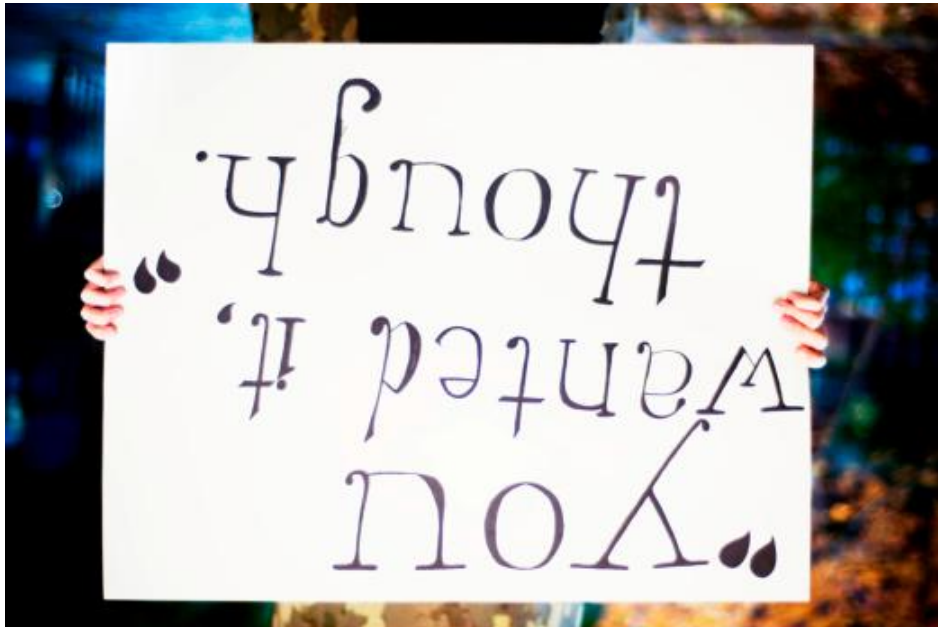 “You
wanted it,
though.”